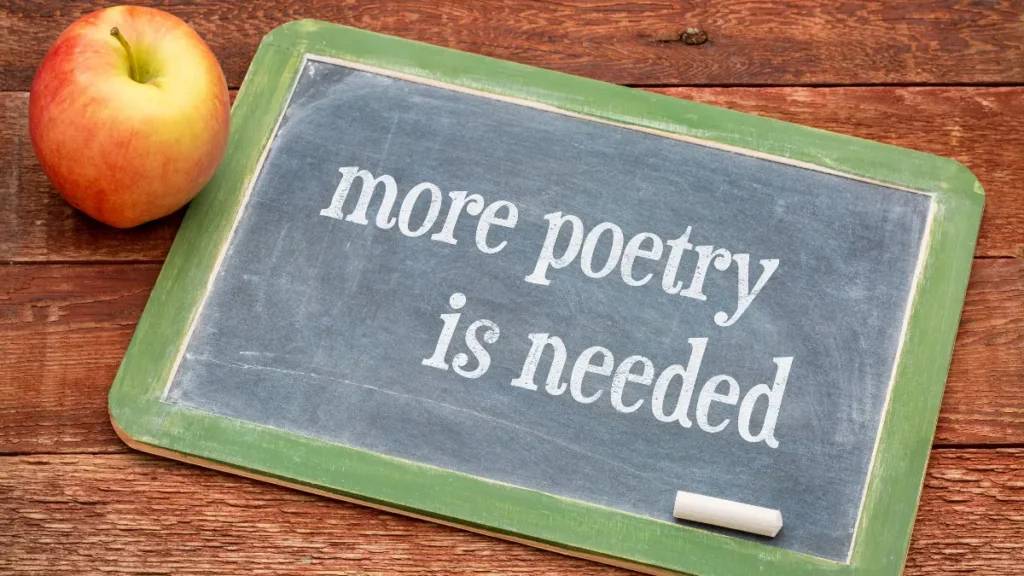 more poetry
is needed